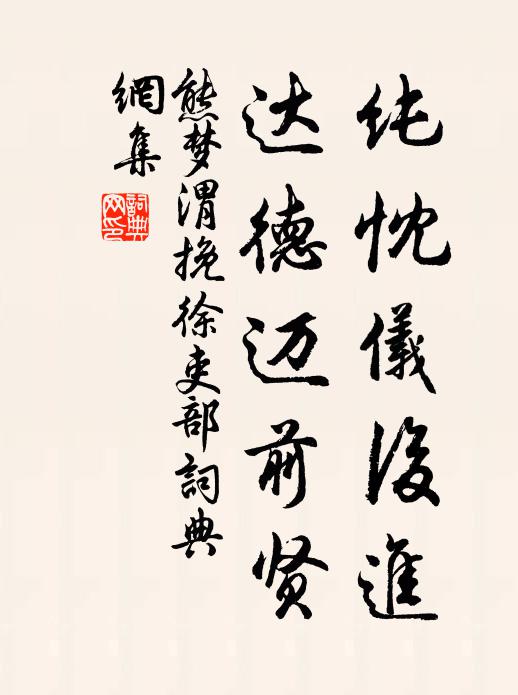 纯忱儀後進
达德迈前贤
熊梦渭挽徐吏部詞典
網集
詞典
网印